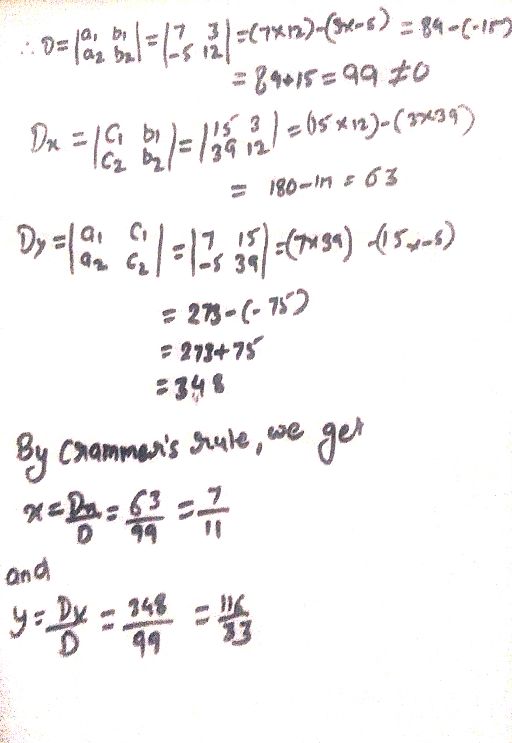 ∴ D = |a₁ b₁; a₂ b₂| = |7 3; -5 12| = (7×12)-(3×-5) = 84-(-15)
= 84+15 = 99 ≠0
Dx = |C₁ b₁; C₂ b₂| = |15 3; 39 12| = (15×12)-(3×39)
= 180-117 = 63
Dy = |a₁ C₁; a₂ C₂| = |7 15; -5 39| = (7×39) -(15×-5)
= 273-(-75)
= 273+75
= 348
By Crammer's rule, we get
x = Dx/D = 63/99 = 7/11
and
y = Dy/D = 348/99 = 116/33